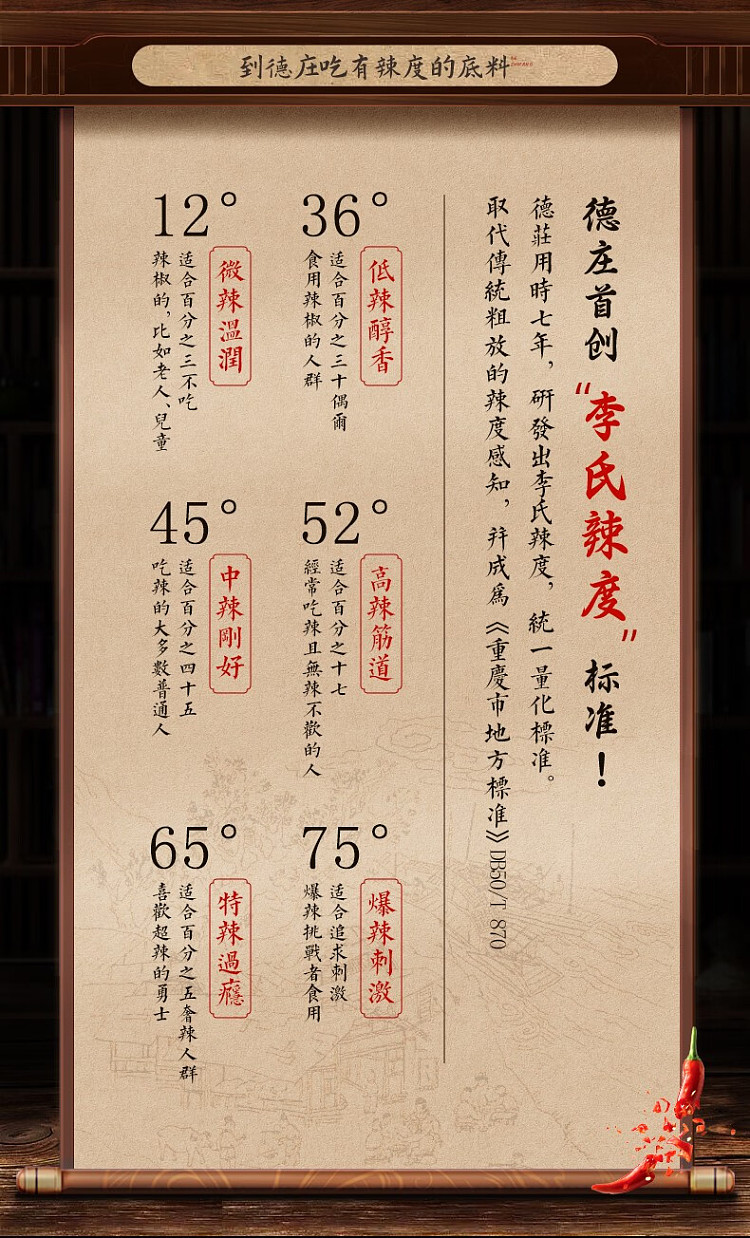 到德庄吃有辣度的底料
德庄首创“李氏辣度”标准！
德莊用時七年，研發出李氏辣度，統一量化標准。
取代傳統粗放的辣度感知，并成爲《重慶市地方標准》DB50/T 870
36°
低辣醇香
适合百分之三十偶爾
食用辣椒的人群
12°
微辣温潤
适合百分之三不吃
辣椒的，比如老人、兒童
52°
高辣筋道
适合百分之十七
經常吃辣且無辣不歡的人
45°
中辣剛好
适合百分之四十五
吃辣的大多數普通人
75°
爆辣刺激
适合追求刺激
爆辣挑戰者食用
65°
特辣過癮
适合百分之五奢辣人群
喜歡超辣的勇士